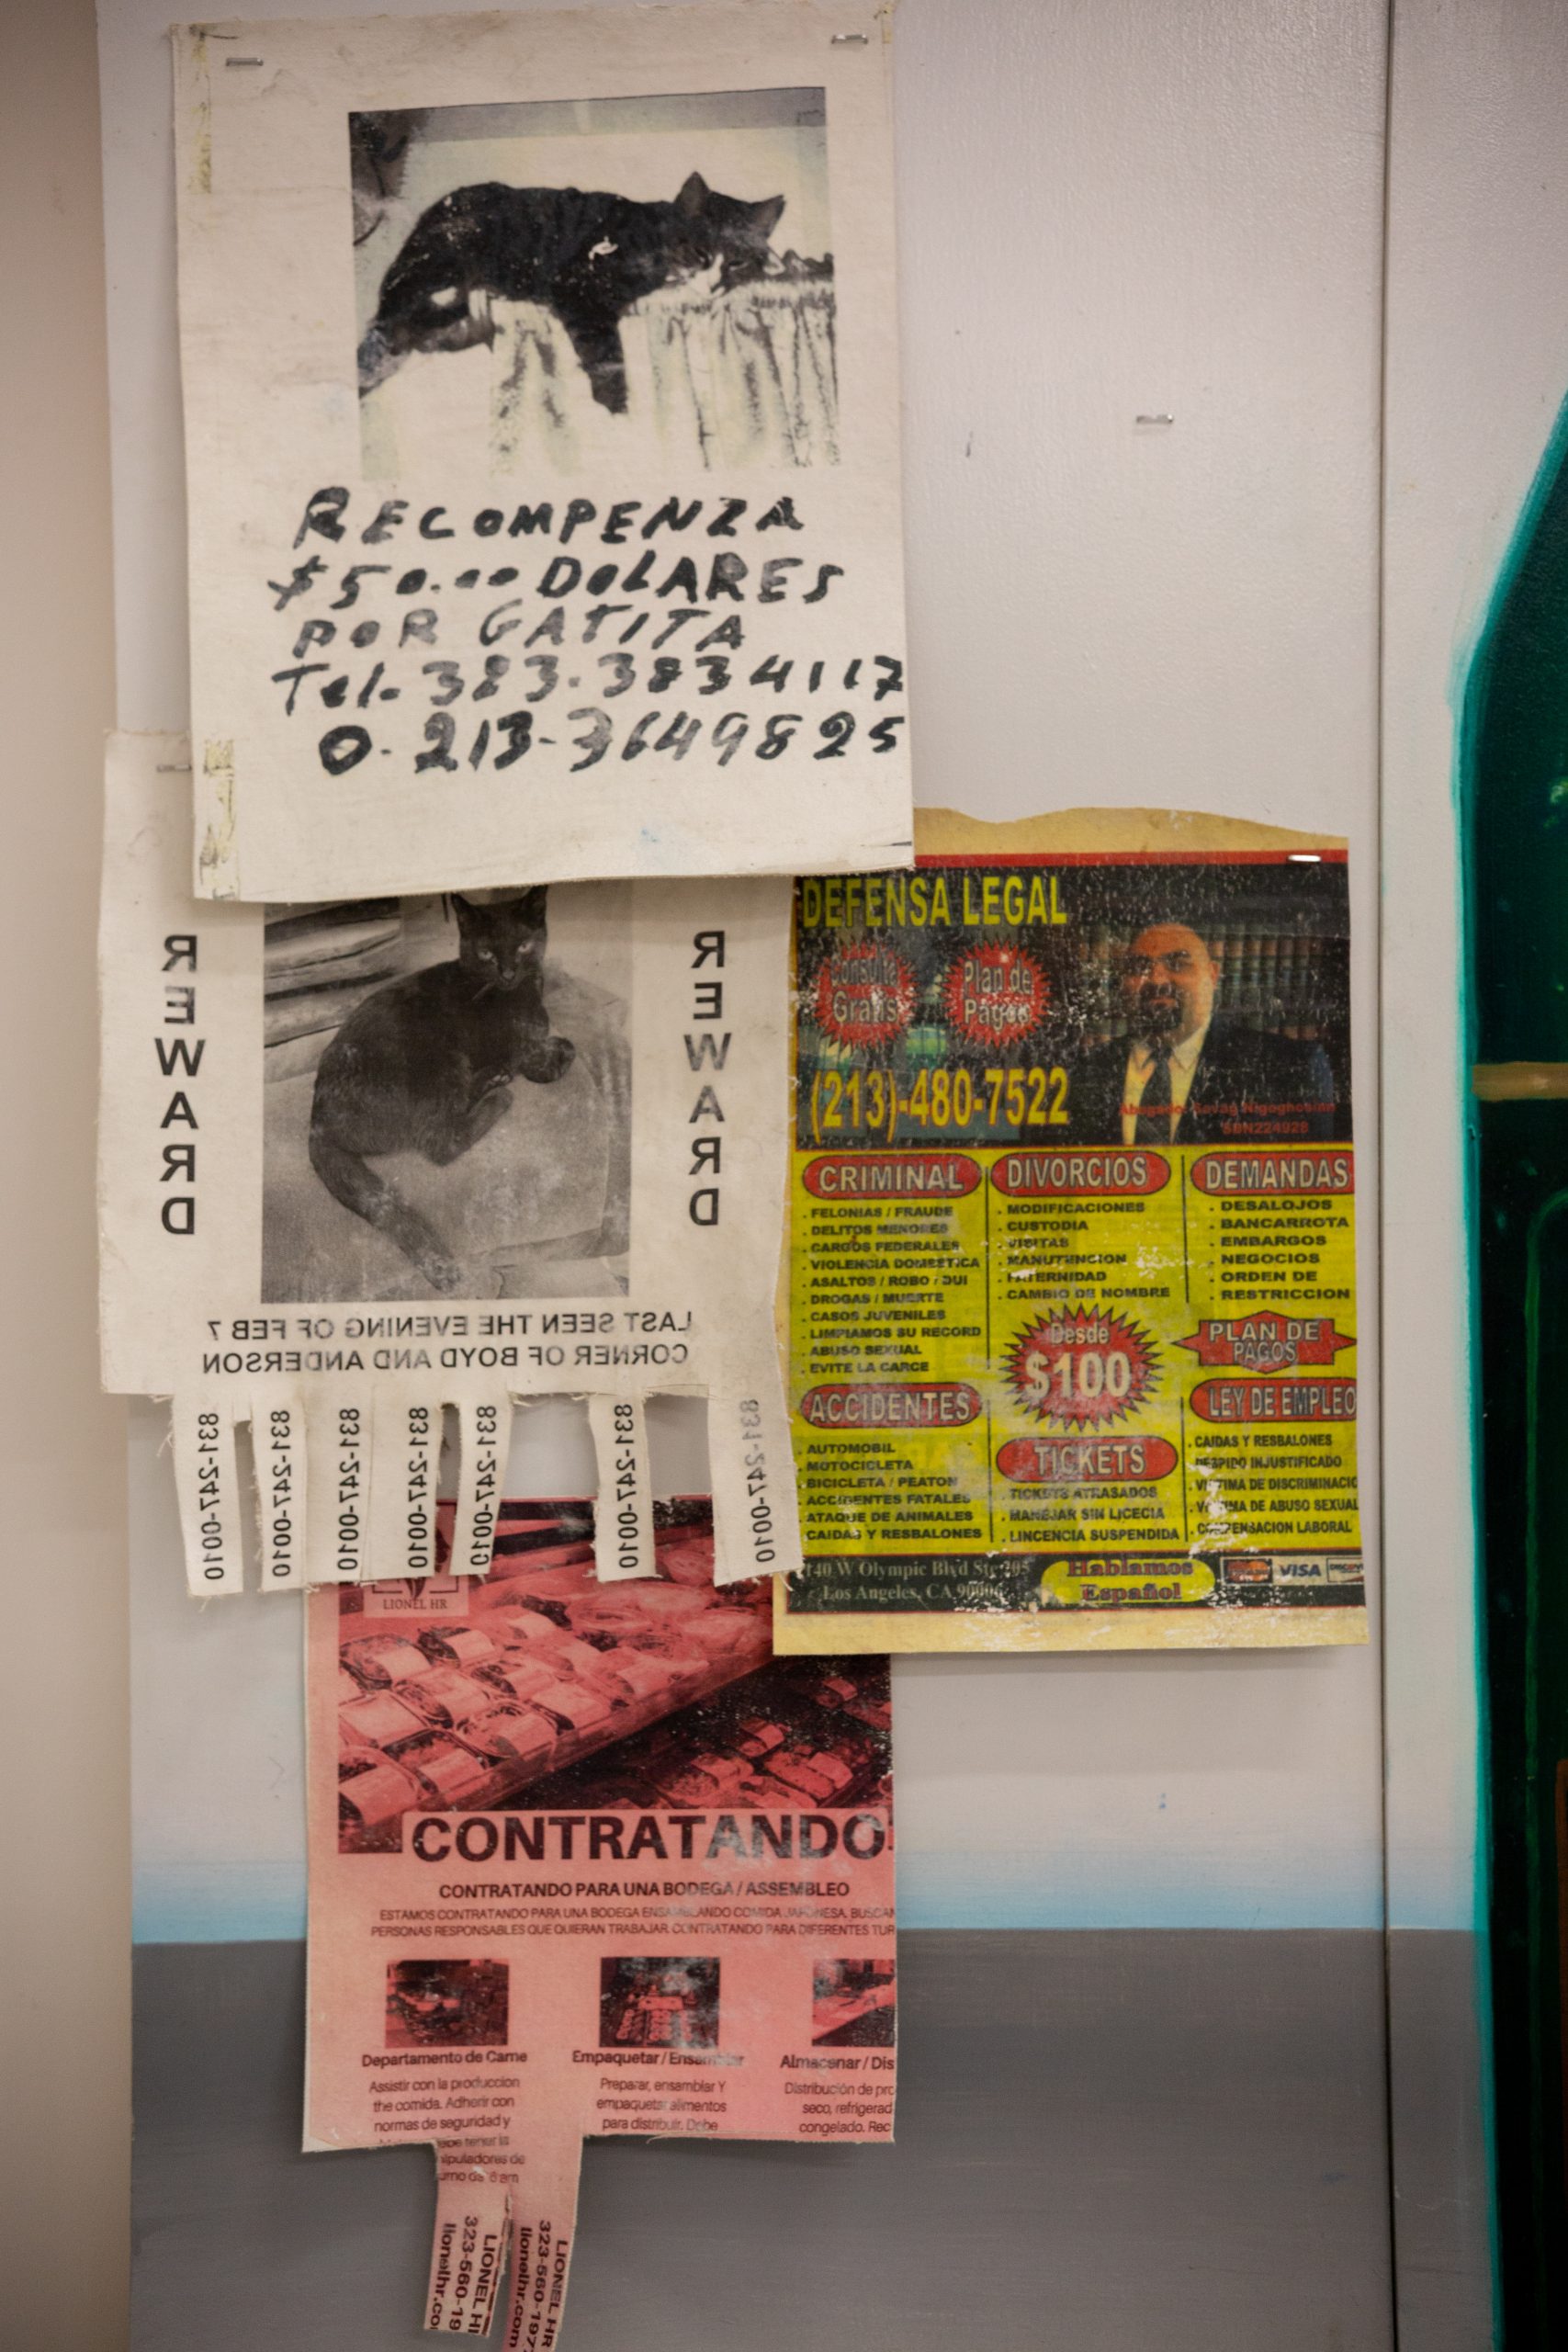 RECOMPENZA
$50.00 DOLARES
POR GATITA
Tel- 383-3834117
O- 213-3649825
REWARD
REWARD
LAST SEEN THE EVENING OF FEB 7
CORNER OF BOYD AND ANDERSON
831-247-0010
831-247-0010
831-247-0010
831-247-0010
831-247-0010
831-247-0010
831-247-0010
DEFENSA LEGAL
Consulta
Gratis
Plan de
Pagos
(213)-480-7522
Abogado: Savag Kigoghosian
SBN224928
CRIMINAL
. FELONIAS / FRAUDE
. DELITOS MENORES
. CARGOS FEDERALES
. VIOLENCIA DOMESTICA
. ASALTOS / ROBO / DUI
. DROGAS / MUERTE
. CASOS JUVENILES
. LIMPIAMOS SU RECORD
. ABUSO SEXUAL
. EVITE LA CARCE
DIVORCIOS
. MODIFICACIONES
. CUSTODIA
. VISITAS
. MANUTENCION
. PATERNIDAD
. CAMBIO DE NOMBRE
DEMANDAS
. DESALOJOS
. BANCARROTA
. EMBARGOS
. NEGOCIOS
. ORDEN DE
. RESTRICCION
Desde
$100
PLAN DE
PAGOS
ACCIDENTES
. AUTOMOBIL
. MOTOCICLETA
. BICICLETA / PEATON
. ACCIDENTES FATALES
. ATAQUE DE ANIMALES
. CAIDAS Y RESBALONES
TICKETS
. TICKETS ATRASADOS
. MANEJAR SIN LICECIA
. LINCENCIA SUSPENDIDA
LEY DE EMPLEO
. CAIDAS Y RESBALONES
. DESPIDO INJUSTIFICADO
. VICTIMA DE DISCRIMINACIO
. VICTIMA DE ABUSO SEXUAL
. COMPENSACION LABORAL
140 W Olympic Blvd Ste 205
Los Angeles, CA 90006
Hablamos
Español
VISA
DISCOVER
LIONEL HR
CONTRATANDO!
CONTRATANDO PARA UNA BODEGA / ASSEMBLEO
ESTAMOS CONTRATANDO PARA UNA BODEGA ENSAMBLANDO COMIDA JAPONESA. BUSCAN
PERSONAS RESPONSABLES QUE QUIERAN TRABAJAR. CONTRATANDO PARA DIFERENTES TUR
Departamento de Carne
Assistir con la produccion
the comida. Adherir con
normas de seguridad y
debe tener la
nipuladores de
urno de 6 am
Empaquetar / Ensamblar
Preparar, ensamblar Y
empaquetar alimentos
para distribuir. Debe
Almacenar / Dis
Distribución de pro
seco, refrigerad
congelado. Rec
LIONEL H
323-560-19
lionelhr.co
LIONEL HR
323-560-197
lionelhr.com